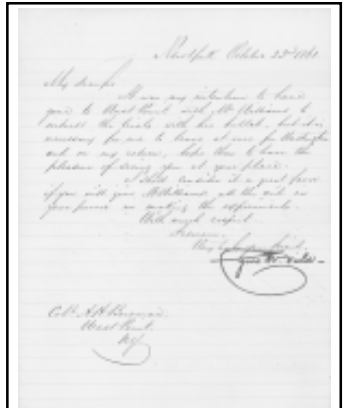 New York October 22nd 1860
My dear Sir
It was my intention to have
gone to West Point with Mr Williams to
witness the trials with his , but it is
necessary for me to leave at once for Washington
and on my return, hope then to have the
pleasure of seeing you at your place.
I shall consider it a great favor
if you will give Mr Williams all the aid in
your power in making the experiments.
With much respect
I remain
Very
Coln A H Bowman
West Point
NY